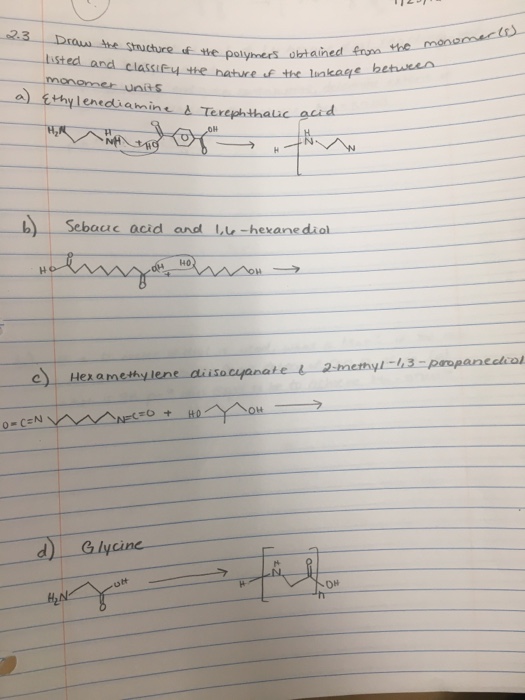 2.3 Draw the structure of the polymers obtained from the monomer(s)
listed and classify the nature of the linkage between
monomer units
a) Ethylenediamine & Terephthalic acid
H2N NH H + HO O O OH → H N H N
b) Sebacic acid and 1,6-hexanediol
HO O O OH + HO OH →
c) Hexamethylene diisocyanate & 2-methyl-1,3-propanediol
O=C=N N=C=O + HO OH →
d) Glycine
H2N O OH → H N H O OH n